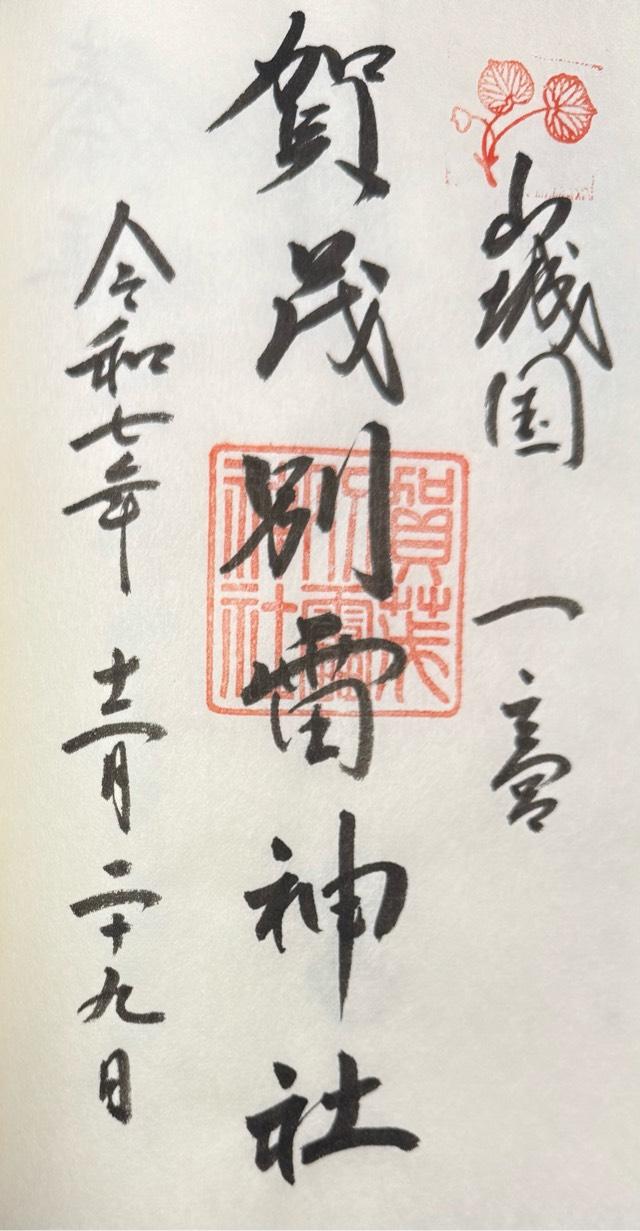 山城国 一之宮
賀茂別雷神社
令和七年 十二月 二十九日
賀茂
別雷
神社